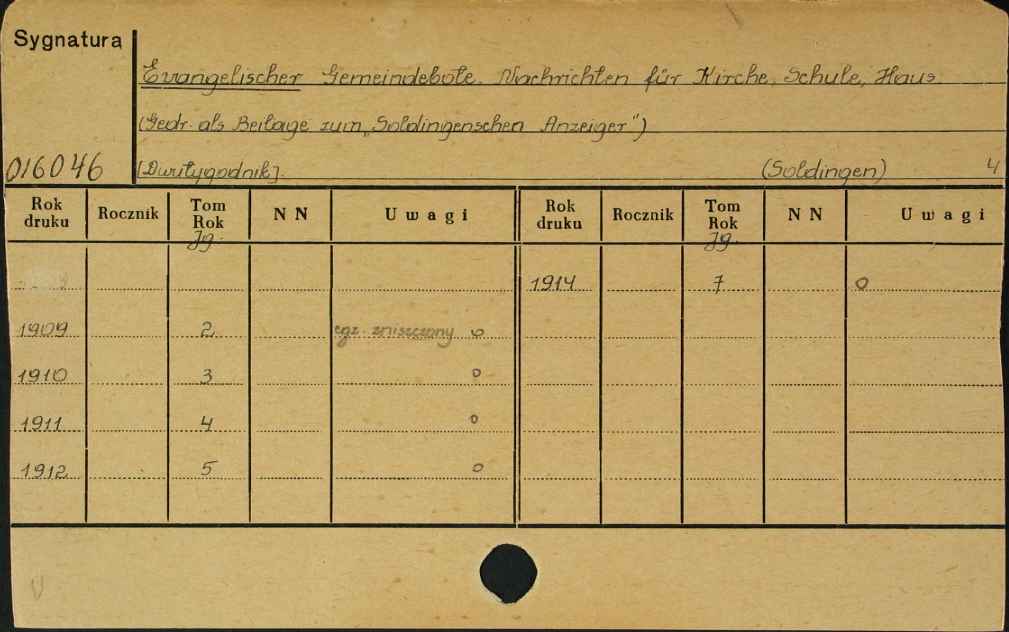 Sygnatura
Evangelischer Gemeindebote. Nachrichten für Kirche, Schule, Haus
(Gedr. als Beilage zum „Soldingenschen Anzeiger")
016046 [Dwutygodnik]. (Soldingen) 4
Rok druku Rocznik Tom Rok NN Uwagi Rok druku Rocznik Tom Rok NN Uwagi
Jg. Jg.
1914 7 o
1909 2 egz. zniszczony o
1910 3 o
1911 4 o
1912 5 o
V